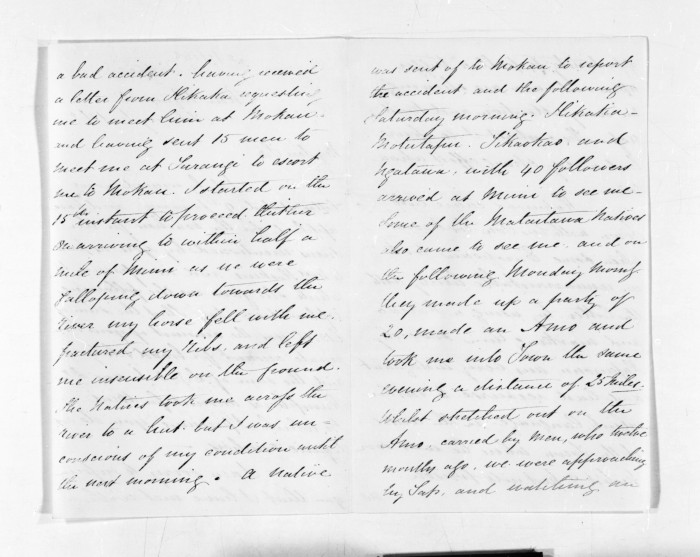 a bad accident. having received
a letter from Hikaka requesting
me to meet him at Mokau.
and having sent 15 men to
meet me at Turangi to escort
me to Mokau. I started on the
15th instant to proceed thither
On arriving to within half a
mile of Mimi as we were
galloping down towards the
river my horse fell with me.
fractured my Ribs. and left
me insensible on the ground.
the Natives took me across the
river to a hut. but I was un-
conscious of my condition until
the next morning. a native
was sent of to Mokau to report
the accident and the following
Saturday morning. Hikaka-
and
with 40 followers
arrived at Mimi to see me-
Some of the Mataitawa Natives
also came to see me. and on
the following Monday Morng
they made up a party of
20, made an Amo and
took me into Town the same
evening a distance of 25 Miles.
Whilst stretched out on the
Amo. carried by men, who twelve
months ago. we were approaching
by Sap. and watching an